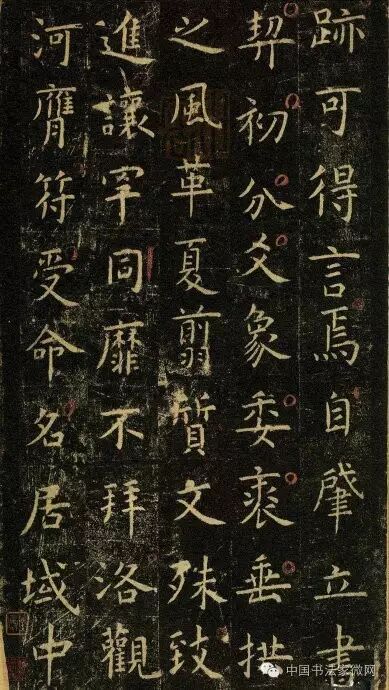 跡可得言焉自肇立書
契初分爻象委裘垂拱
之風革夏翦質文殊致
進讓罕同靡不拜洛觀
河膺符受命名居域中
中国书法家微网